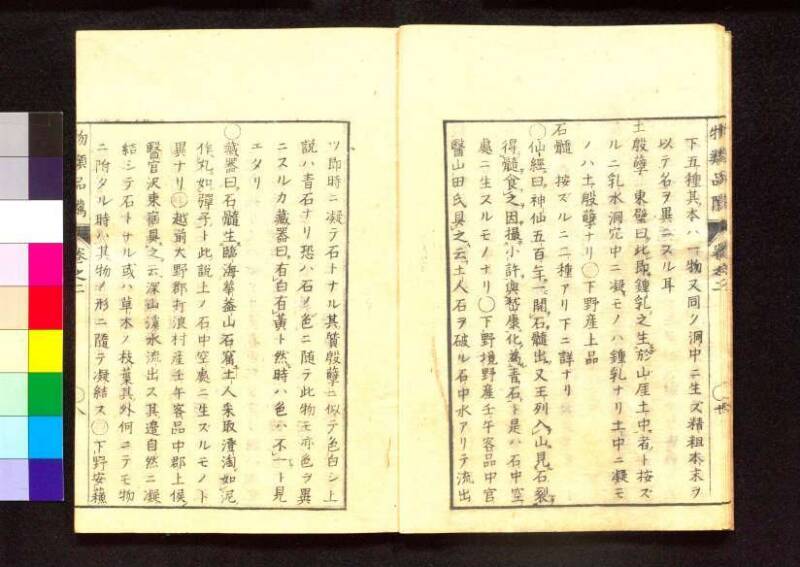 下五種其本ハ一物又同ク洞中ニ生ズ精粗本末ヲ
以テ名ヲ異ニスル耳
土殷孽 東璧曰此即鍾乳之生於山厓土中者ト按ズ
ルニ乳水洞穴中ニ凝モノハ鍾乳ナリ土中ニ凝モ
ノハ土殷孽ナリ〇下野産上品
石髓 按ズルニ二種アリ下ニ詳ナリ
〇仙經曰神仙五百年一開石髓出又王列入山見石裂
得髓食之因撮少許與嵆康化為青石ト是ハ石中空
處ニ生スルモノナリ〇下野境野産壬午客品中官
醫山田氏具之云土人石ヲ破ル石中水アリテ流出
ツ即時ニ凝テ石トナル其質殷孽ニ似テ色白シ上
説ハ青石ナリ恐ハ石ノ色ニ随テ此物モ亦色ヲ異
ニスルカ藏器曰有白有黄ト然時ハ色ハ不一ト見
エタリ
〇藏器曰石髓生臨海華蓋山石窟土人采取澄淘如泥
作丸如彈子ト此説上ノ石中空處ニ生スルモノト
異ナリ〇越前大野郡打浪村産壬午客品中郡上侯
醫官沢東宿具之云深山溪水流出ス其邊自然ニ凝
結シテ石トナル或ハ草木ノ枝葉其外何ニテモ物
ニ附タル時ハ其物ノ形ニ隨テ凝結ス〇下野安蘓
物類品隲 卷之二
〇八